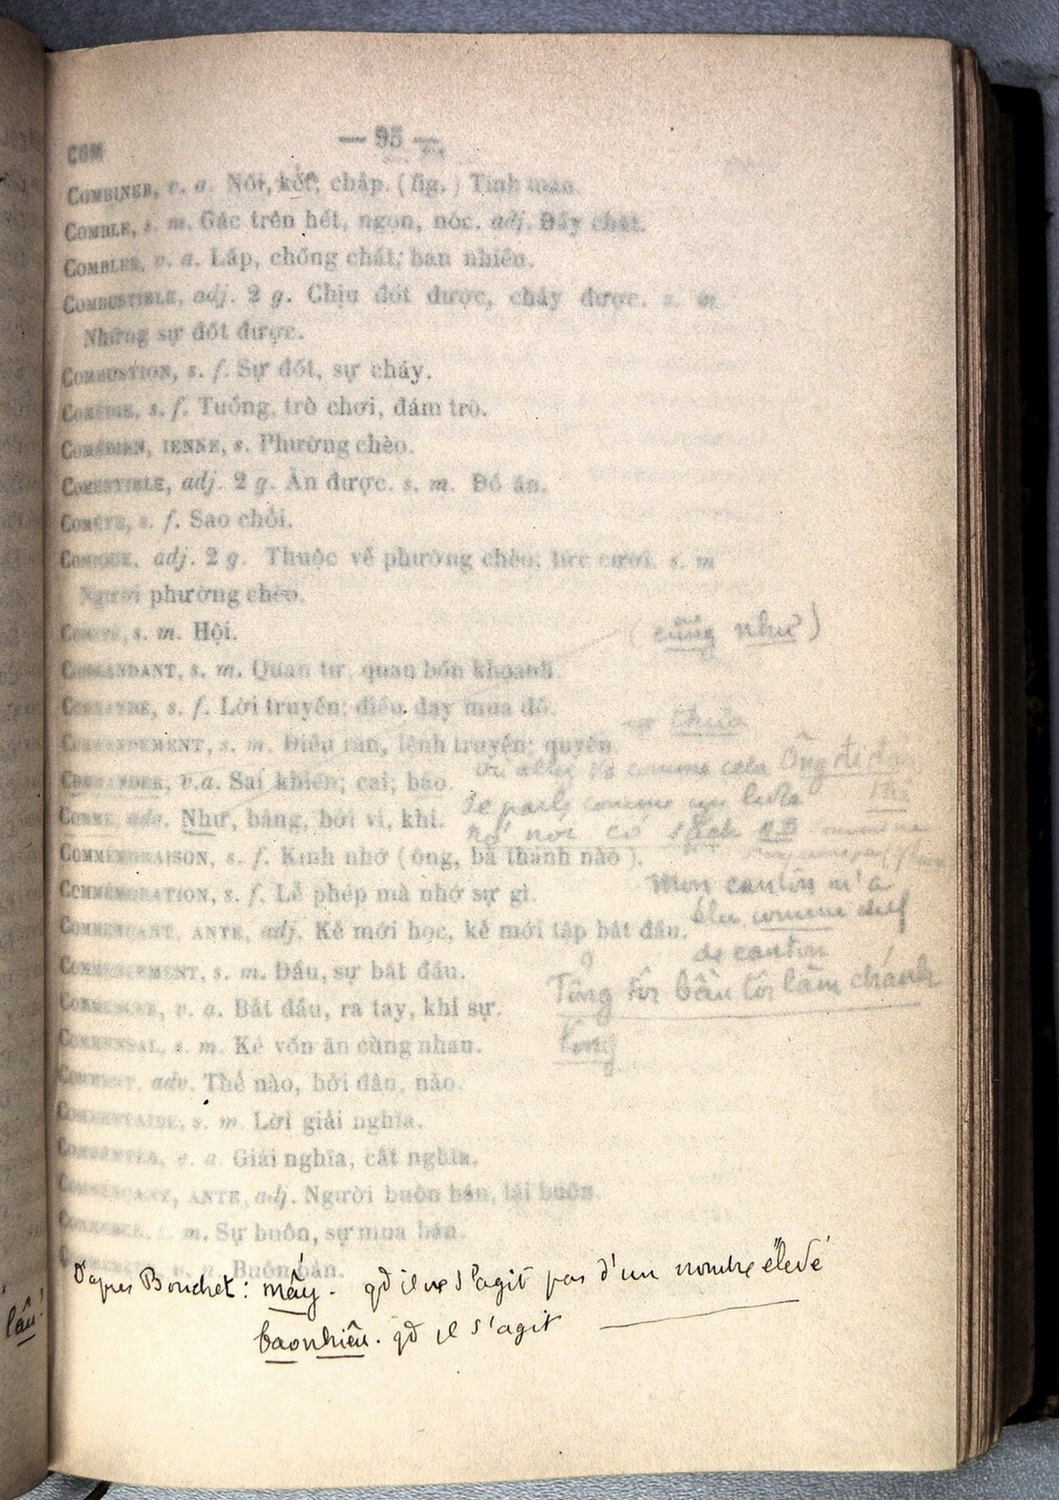 COM
— 95 —
COMBINER, v. a. Nối, kết, chấp. (fig.) Tính toán.
COMBLE, s. m. Gác trên hết, ngọn, nóc. adj. Đầy chật.
COMBLER, v. a. Lấp, chồng chất; ban nhiều.
COMBUSTIBLE, adj. 2 g. Chịu đốt được, cháy được. s. m
Những sự đốt được.
COMBUSTION, s. f. Sự đốt, sự cháy.
COMÉDIE, s. f. Tuồng, trò chơi, đám trò.
COMÉDIEN, IENNE, s. Phường chèo.
COMESTIBLE, adj. 2 g. Ăn được. s. m. Đồ ăn.
COMÈTE, s. f. Sao chổi.
COMIQUE, adj. 2 g. Thuộc về phường chèo; tức cười. s. m
Người phường chèo.
COMITÉ, s. m. Hội.
(cũng như)
COMMANDANT, s. m. Quan tư, quan bốn khoanh.
COMMANDE, s. f. Lời truyền; điều dạy mua đồ.
thửa
COMMANDEMENT, s. m. Điều răn, lệnh truyền; quyền.
COMMANDER, v.a. Sai khiến; cai; bảo.
où allez vs comme cela Ông đi đâu
thế
COMME, adv. Như, bằng, bởi vì, khi.
COMMÉMORAISON, s. f. Kính nhớ (ông, bà thánh nào).
COMMÉMORATION, s. f. Lễ phép mà nhớ sự gì.
mon canton m'a
élu comme chef
de canton
COMMENÇANT, ANTE, adj. Kẻ mới học, kẻ mới tập bắt đầu.
COMMENCEMENT, s. m. Đầu, sự bắt đầu.
Tổng tôi bầu tôi làm chánh
tổng
COMMENCER, v. a. Bắt đầu, ra tay, khi sự.
COMMENSAL, s. m. Kẻ vốn ăn cùng nhau.
COMMENT, adv. Thể nào, bởi đâu, nào.
COMMENTAIRE, s. m. Lời giải nghĩa.
COMMENTER, v. a. Giải nghĩa, cắt nghĩa.
COMMERÇANT, ANTE, adj. Người buôn bán, lái buôn.
COMMERCE, s. m. Sự buôn, sự mua bán.
COMMERCER, v. n. Buôn bán.
D'après Bouchet: mấy. qd il ne s'agit pas d'un nombre élevé
bao nhiêu. qd il s'agit